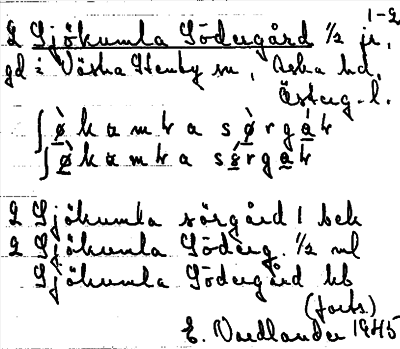 1-2
2 Sjökumla Södergård 1/2 jr,
gd i Västra Stenby sn, Aska hd,
Österg. l.
ʃø̀kumla sø̀rgår
ʃø̀kumla sørgar
2 Sjökumla sörgård 1 bek
2 Sjökumla Söderg. 1/2 ml
Sjökumla Södergård hb
(forts.)
E. Vardlander 1945